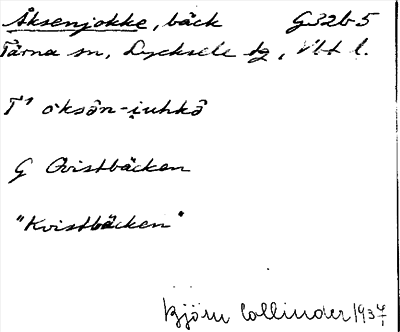 Åksenjokke, bäck G32b5
Tärna sn, Lycksele tg, Vbt l.
G Qvistbäcken
"Kvistbäcken"
Björn Collinder 1937